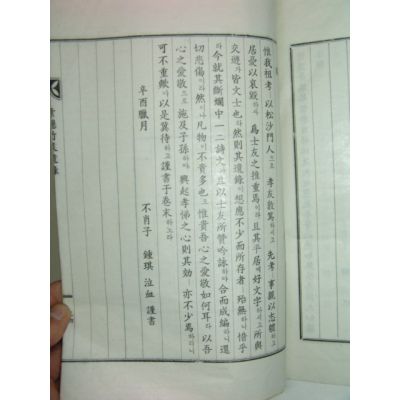 惟我祖考 以松沙門人으로 孝友敦篤하시고 先考 事親以志體하고
居憂以哀毁하야 爲士友之推重焉이라 且其平居에 好文字하시고 所與
交遊가 皆文士也라 然則其遺錄이 想應不少而所存者 殆無하니 惜乎
라 今就其斷爛中一二詩文과 且以士友所贊吟詠하야 合而成編하니 還
切悲傷이라 然이나 凡物이 不貴多也오 惟貴吾心之愛敬如何耳라 以吾
心之愛敬으로 施及子孫하야 興起孝悌之心則其効 亦不少焉하리니
可不重歟아 以是冀待하고 謹書于卷末하노라
辛酉臘月
不肖子 鍾琪 泣血 謹書